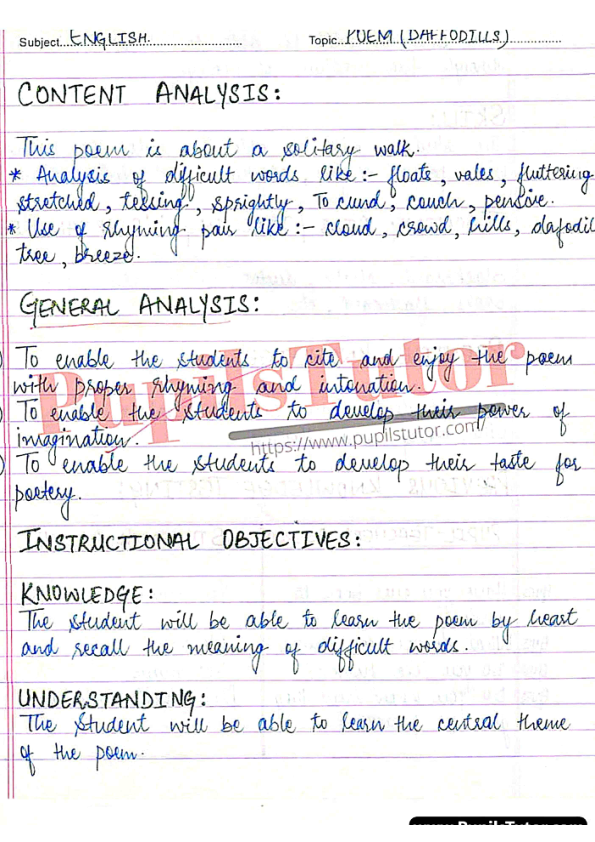 Subject....ENGLISH........................ Topic....POEM (DAFFODILLS)................
CONTENT ANALYSIS:
This poem is about a solitary walk.
* Analysis of difficult words like :- floats, vales, fluttering
stretched, tessing, sprightly, To cund, couch, pensive.
* Use of rhyming pair like :- cloud, crowd, hills, dafodil
tree, breeze.
GENERAL ANALYSIS:
) To enable the students to cite and enjoy the poem
with proper rhyming and intonation.
) To enable the students to develop their power of
imagination.
) To enable the students to develop their taste for
poetery.
INSTRUCTIONAL OBJECTIVES:
KNOWLEDGE:
The student will be able to learn the poem by heart
and recall the meaning of difficult words.
UNDERSTANDING:
The student will be able to learn the central theme
of the poem.
PupilsTutor
https://www.pupilstutor.com/